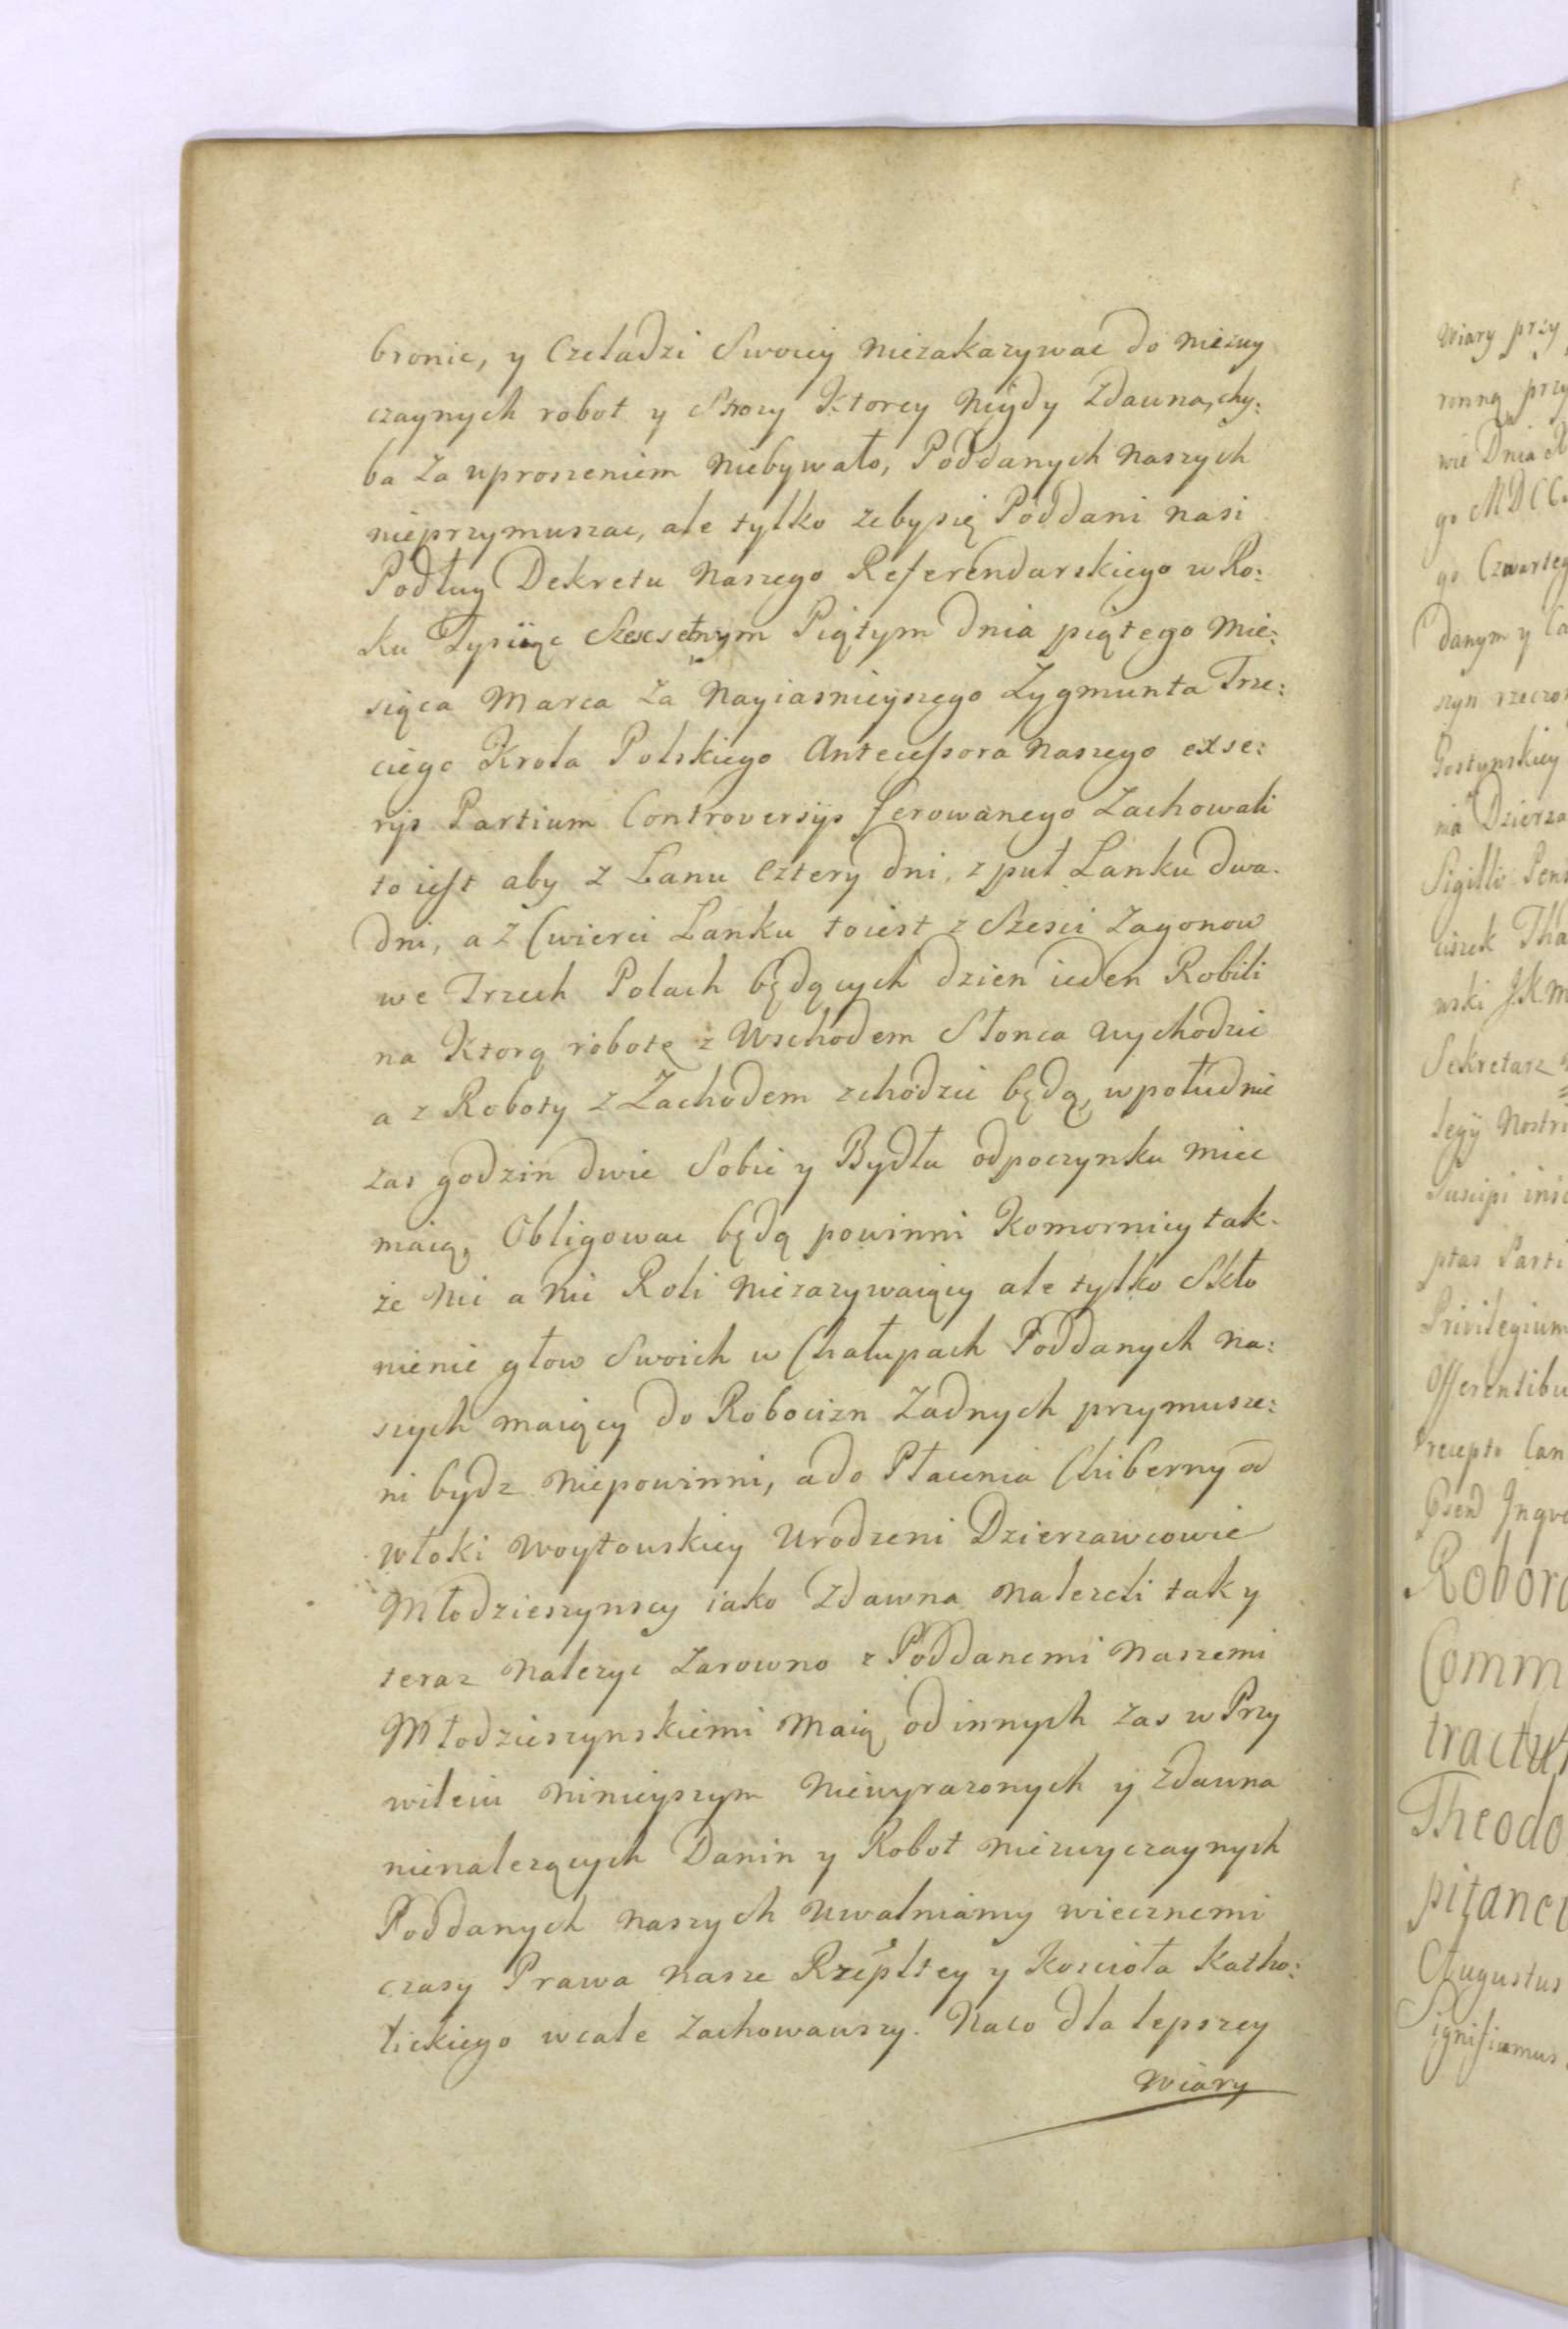 bronic, y Czeladzi Swoiey niezakazywac do niezwy
czaynych robot y Strozy Ktorey nigdy zdawna, chy:
ba za uproszeniem niebywało, Poddanych naszych
nieprzymuszac, ale tylko zeby się Poddani nasi
Podług Dekretu naszego Referendarskiego w Ro:
ku Tysiąc Szescsetnym Piątym dnia piątego Mie:
siąca Marca za Nayiasnieyszego Zygmunta Trze:
ciego Krola Polskiego Antecessora naszego exse:
rys Partium Controversys ferowanego Zachowali
to iest aby z Łanu Cztery dni, z puł Łanku dwa
dni, a z Cwierci Łanku toiest z Szesci Zagonow
we Trzech Polach będących dzien ieden Robili
na Ktorą robotę z Wschodem Słonca wychodzic
a z Roboty z Zachodem zchodzic będą, w południe
zas godzin dwie Sobie y Bydłu odpoczynku miec
maią, Obligowac będą powinni Komornicy tak
że nic a nic Roli niezazywaiący ale tylko Skło
nienie głow Swoich w Chałupach Poddanych na:
szych maiący do Robocizn Zadnych przymusze:
ni bydz niepowinni, a do Płacenia Chiberny od
włoki Woytowskiey Urodzeni Dzierzawcowie
Młodzieszynscy iako Zdawna nalezeli tak y
teraz nalezyc Zarowno z Poddanemi naszemi
Młodzieszynskiemi maią, od innych zas w Przy
wileiu ninieyszym niewyrazonych y zdawna
nienalezących Danin y Robot niezwyczaynych
Poddanych naszych uwalniamy wiecznemi
czasy Prawa nasze Rzepltey y Koscioła Katho:
lickiego wcale zachowawszy. Naco dla lepszey
Wiary
Wiary przy
ronną przy
wie Dnia
go MDCC
go Czwarteg
danym y
szyn rzeczo
Gostynskiey
nia Dzierza
Sigilli
Tha
wski JKM
Sekretarz
Nostri
Parti
Privilegium
Offerentibu
recepto
Robora
Comm
tractu
Theodo
pitane
Augustus
ignificamus